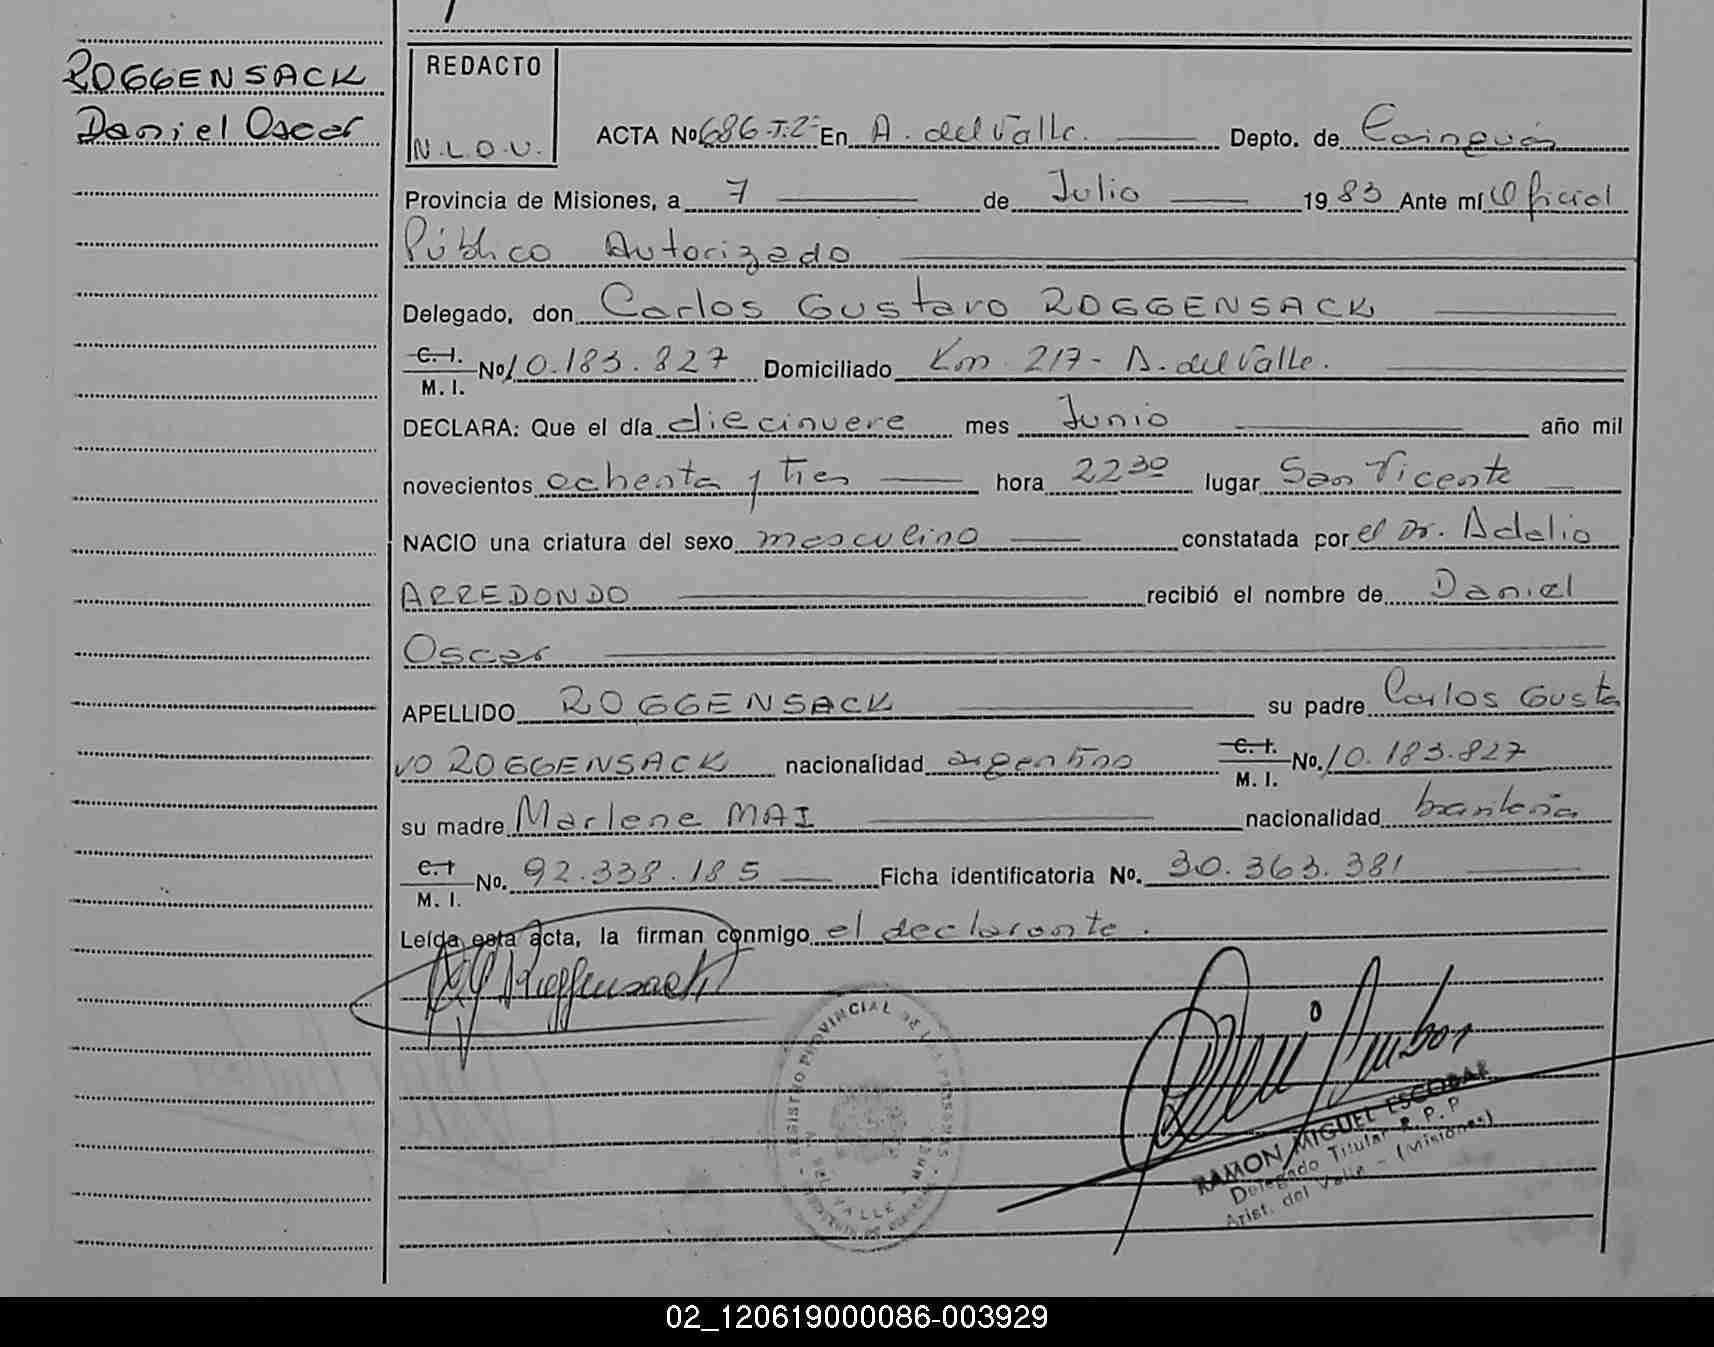 ROGGENSACK
Daniel Oscar
REDACTO
N.L.O.V.
ACTA Nº 686-T.2- En A. del Valle. Depto. de Cainguás
Provincia de Misiones, a 7 de Julio 1983 Ante mí Oficial
Público Autorizado
Delegado, don Carlos Gustavo ROGGENSACK
C. I. / M. I. Nº 10.183.827 Domiciliado Km. 217- A. del Valle.
DECLARA: Que el día diecinueve mes Junio año mil
novecientos ochenta y tres hora 22 30 lugar San Vicente
NACIO una criatura del sexo masculino constatada por el Dr. Adelio
ARREDONDO recibió el nombre de Daniel
Oscar
APELLIDO ROGGENSACK su padre Carlos Gusta
vo ROGGENSACK nacionalidad argentino C. I. / M. I. No. 10.183.827
su madre Marlene MAI nacionalidad brasileña
C. I / M. I. No. 92.338.185 Ficha identificatoria No. 30.363.381
Leída esta acta, la firman conmigo el declarante.
REGISTRO PROVINCIAL DE LAS PERSONAS
DEL VALLE
RAMON MIGUEL ESCOBAR
Delegado Titular R. P. P
Arist. del Valle - (Misiones)
02_120619000086-003929